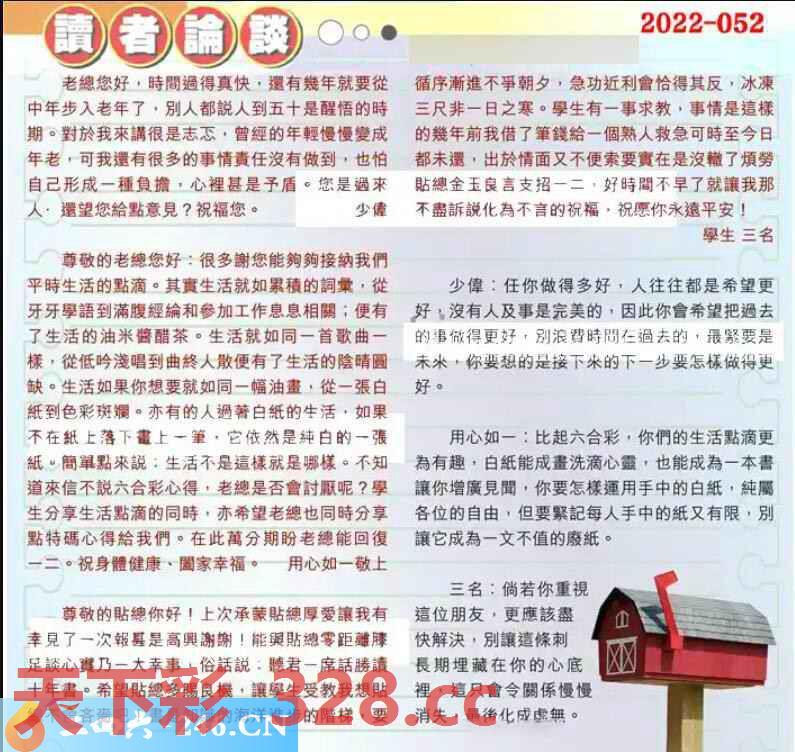 讀者論談
2022-052
老總您好，時間過得真快，還有幾年就要從
中年步入老年了，別人都説人到五十是醒悟的時
期。對於我來講很是忐忑，曾經的年輕慢慢變成
年老，可我還有很多的事情責任沒有做到，也怕
自己形成一種負擔，心裡甚是予盾。您是過來
人，還望您給點意見？祝福您。 少偉
尊敬的老總您好：很多謝您能夠夠接納我們
平時生活的點滴。其實生活就如累積的詞彙，從
牙牙學語到滿腹經綸和參加工作息息相關；便有
了生活的油米醬醋茶。生活就如同一首歌曲一
樣，從低吟淺唱到曲終人散便有了生活的陰晴圓
缺。生活如果你想要就如同一幅油畫，從一張白
紙到色彩斑斕。亦有的人過著白紙的生活，如果
不在紙上落下畫上一筆，它依然是純白的一張
紙。簡單點來説：生活不是這樣就是哪樣。不知
道來信不説六合彩心得，老總是否會討厭呢？學
生分享生活點滴的同時，亦希望老總也同時分享
點特碼心得給我們。在此萬分期盼老總能回復
一二。祝身體健康、闔家幸福。 用心如一敬上
尊敬的貼總你好！上次承蒙貼總厚愛讓我有
幸見了一次報甚是高興謝謝！能與貼總零距離膝
足談心實乃一大幸事，俗話説：聽君一席話勝讀
十年書。希望貼總多賜良機，讓學生受教我想貼
海洋進步的階梯，要
循序漸進不爭朝夕，急功近利會恰得其反，冰凍
三尺非一日之寒。學生有一事求教，事情是這樣
的幾年前我借了筆錢給一個熟人救急可時至今日
都未還，出於情面又不便索要實在是沒轍了煩勞
貼總金玉良言支招一二，好時間不早了就讓我那
不盡訴説化為不言的祝福，祝愿你永遠平安！
學生 三名
少偉：任你做得多好，人往往都是希望更
好，沒有人及事是完美的，因此你會希望把過去
的事做得更好，別浪費時間在過去的，最緊要是
未來，你要想的是接下來的下一步要怎樣做得更
好。
用心如一：比起六合彩，你們的生活點滴更
為有趣，白紙能成畫洗滌心靈，也能成為一本書
讓你增廣見聞，你要怎樣運用手中的白紙，純屬
各位的自由，但要緊記每人手中的紙又有限，別
讓它成為一文不值的廢紙。
三名：倘若你重視
這位朋友，更應該盡
快解決，別讓這條刺
長期埋藏在你的心底
裡，這只會令關係慢慢
消失，最後化成虛無。
天下彩-328.cc
246.CN